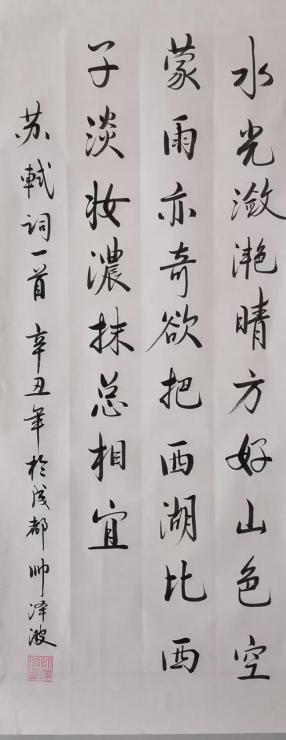 水光潋滟晴方好山色空
蒙雨亦奇欲把西湖比西
子淡妆浓抹总相宜
苏轼词一首辛丑年於成都帅泽波